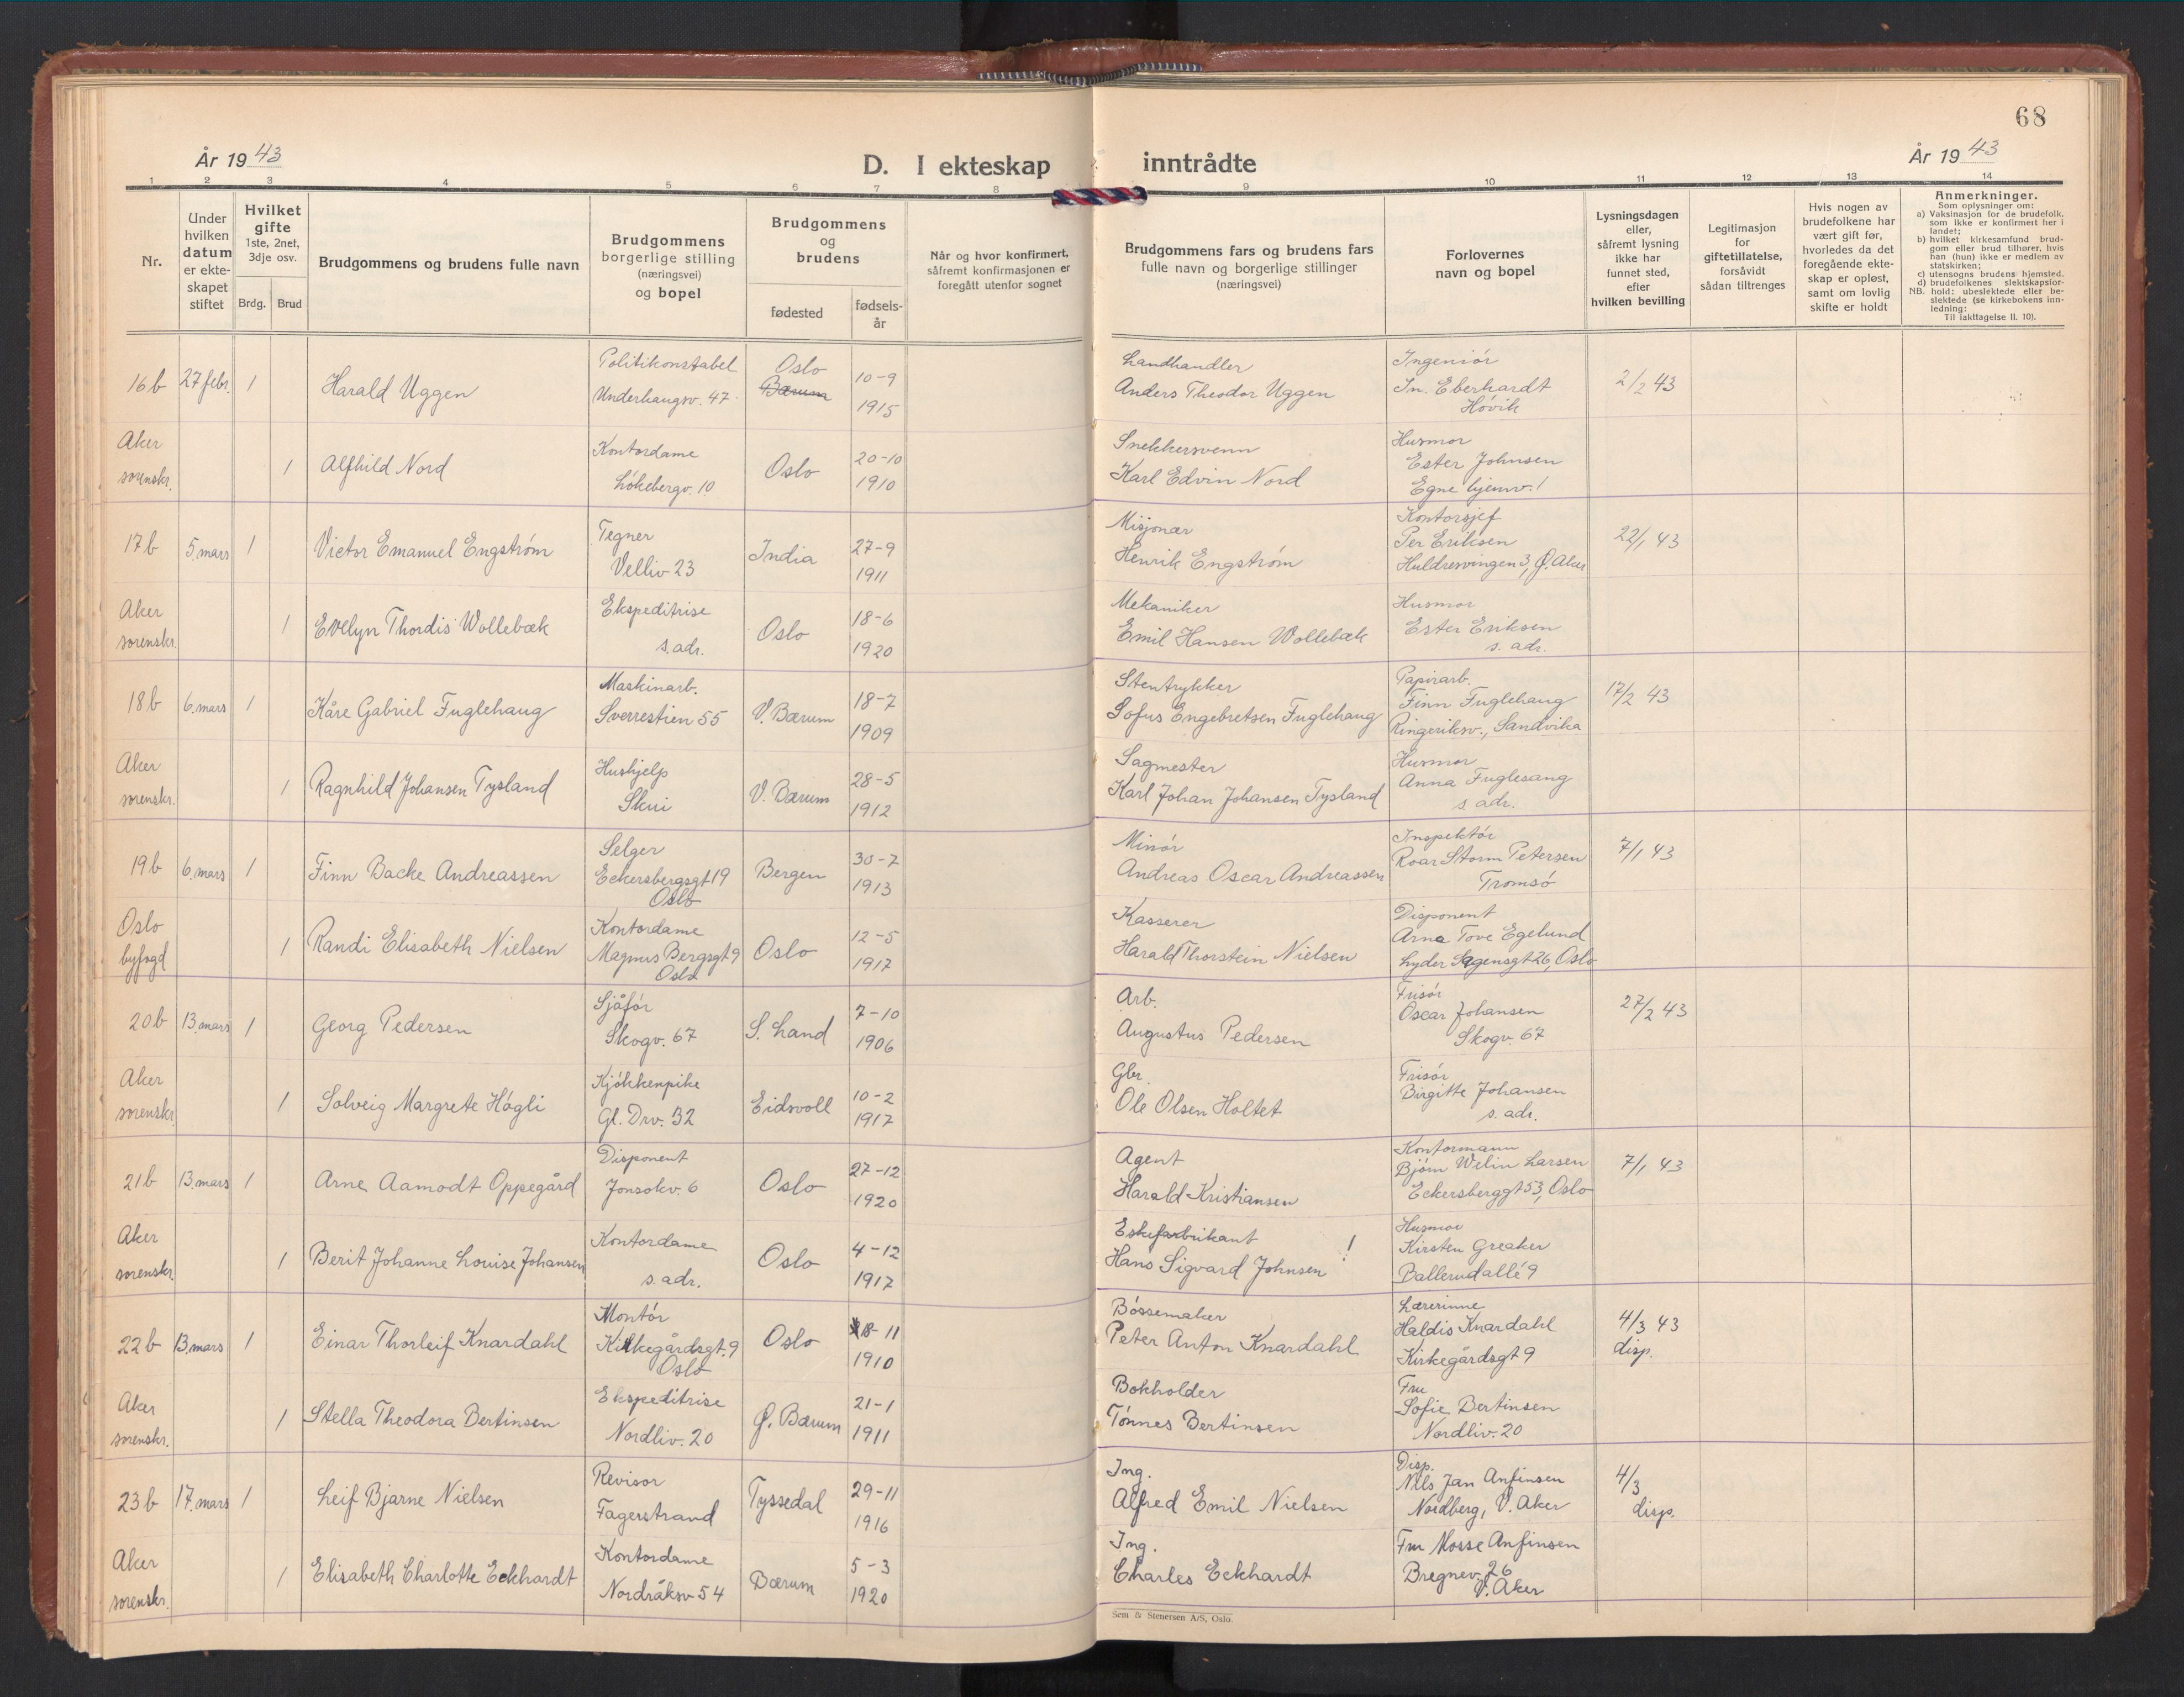 68
År 1943
D. I ekteskap inntrådte
År 1943
1 2 3 4 5 6 7 8 9 10 11 12 13 14
Nr.
Under
hvilken
datum
er ekte-
skapet
stiftet
Hvilket
gifte
1ste, 2net,
3dje osv.
Brdg. Brud
Brudgommens og brudens fulle navn
Brudgommens
borgerlige stilling
(næringsvei)
og bopel
Brudgommens
og
brudens
fødested
fødsels-
år
Når og hvor konfirmert,
såfremt konfirmasjonen er
foregått utenfor sognet
Brudgommens fars og brudens fars
fulle navn og borgerlige stillinger
(næringsvei)
Forlovernes
navn og bopel
Lysningsdagen
eller,
såfremt lysning
ikke har
funnet sted,
efter
hvilken bevilling
Legitimasjon
for
giftetillatelse,
forsåvidt
sådan tiltrenges
Hvis nogen av
brudefolkene har
vært gift før,
hvorledes da det
foregående ekte-
skap er opløst,
samt om lovlig
skifte er holdt
Anmerkninger.
Som oplysninger om:
a) Vaksinasjon for de brudefolk,
som ikke er konfirmert her i
landet;
b) hvilket kirkesamfund brud-
gom eller brud tilhører, hvis
han (hun) ikke er medlem av
statskirken;
c) utensogns brudens hjemsted.
d) brudefolkenes slektskapsfor-
NB. hold: ubeslektede eller be-
slektede (se kirkebokens inn-
ledning:
Til iakttagelse II. 10).
16b 27 febr. 1 Harald Uggen
Politikonstabel
Underhaugsv. 47
Oslo
Bærum
10-9
1915
Landhandler
Anders Theodor Uggen
Ingeniør
Jn. Eberhardt
Høvik
2/2 43
Aker
sorenskr.
1 Alfhild Nord
Kontordame
Løkebergv. 10
Oslo
20-10
1910
Snekkersvenn
Karl Edvin Nord
Husmor
Ester Johnsen
Egne hjemv. 1
17b 5. mars 1 Victor Emanuel Engstrøm
Tegner
Velliv 23
India
27-9
1911
Misjonær
Henrik Engstrøm
Kontorsjef
Per Eriksen
Huldresvingen 3, Ø. Aker
22/1 43
Aker
sorenskr.
1 Evelyn Thordis Wollebæk
Ekspeditrise
s. adr.
Oslo
18-6
1920
Mekaniker
Emil Hansen Wollebæk
Husmor
Ester Eriksen
s. adr.
18b 6. mars 1 Kåre Gabriel Fuglehaug
Maskinarb.
Sverrestien 55
V. Bærum
18-7
1909
Stentrykker
Sofus Engebretsen Fuglehaug
Papirarb.
Finn Fuglehaug
Ringeriksv., Sandvika
17/2 43
Aker
sorenskr.
1 Ragnhild Johansen Tysland
Hushjelp
Skui
V. Bærum
28-5
1912
Sagmester
Karl Johan Johansen Tysland
Husmor
Anna Fuglesang
s. adr.
19b 6. mars 1 Finn Backe Andreassen
Selger
Eckersbergsgt 19
Oslo
Bergen
30-7
1913
Minør
Andreas Oscar Andreassen
Inspektør
Roar Storm Petersen
Tromsø
7/1 43
Oslo
byfogd
1 Randi Elisabeth Nielsen
Kontordame
Magnus Bergsgt 9
Oslo
Oslo
12-5
1917
Kasserer
Harald Thorstein Nielsen
Disponent
Arna Tove Egelund
Lyder Sagensgt 26, Oslo
20b 13. mars 1 Georg Pedersen
Sjåfør
Skogv. 67
S. Land
7-10
1906
Arb.
Augustus Pedersen
Frisør
Oscar Johansen
Skogv. 67
27/2 43
Aker
sorenskr.
1 Solveig Margrete Høgli
Kjøkkenpike
Gl. Drv. 32
Eidsvoll
10-2
1917
Gbr.
Ole Olsen Holtet
Frisør
Birgitte Johansen
s. adr.
21b 13. mars 1 Arne Aamodt Oppegård
Disponent
Jonsokv. 6
Oslo
27-12
1920
Agent
Harald Kristiansen
Kontormann
Bjørn Welin Larsen
Eckersberggt 53, Oslo
7/1 43
Aker
sorenskr.
1 Berit Johanne Louise Johansen
Kontordame
s. adr.
Oslo
4-12
1917
Eskefabrikant
Hans Sigvard Johnsen !
Husmor
Kirsten Greaker
Ballerudallé 9
22b 13. mars 1 Einar Thorleif Knardahl
Montør
Kirkegårdsgt. 9
Oslo
Oslo
18-11
1910
Bøssemaker
Peter Anton Knardahl
Lærerinne
Haldis Knardahl
Kirkegårdsgt 9
4/3 43
disp.
Aker
sorenskr.
1 Stella Theodora Bertinsen
Ekspeditrise
Nordliv. 20
Ø. Bærum
21-1
1911
Bokholder
Tønnes Bertinsen
Fru
Sofie Bertinsen
Nordliv. 20
23b 17. mars 1 Leif Bjarne Nielsen
Revisor
Fagerstrand
Tyssedal
29-11
1916
Ing.
Alfred Emil Nielsen
Disp.
Nils Jan Anfinsen
Nordberg, V. Aker
4/3
disp.
Aker
sorenskr.
1 Elisabeth Charlotte Eckhardt
Kontordame
Nordråksv 54
Bærum
5-3
1920
Ing.
Charles Eckhardt
Fru Mosse Anfinsen
Bregnev. 26
V. Aker
Sem & Stenersen A/S, Oslo.